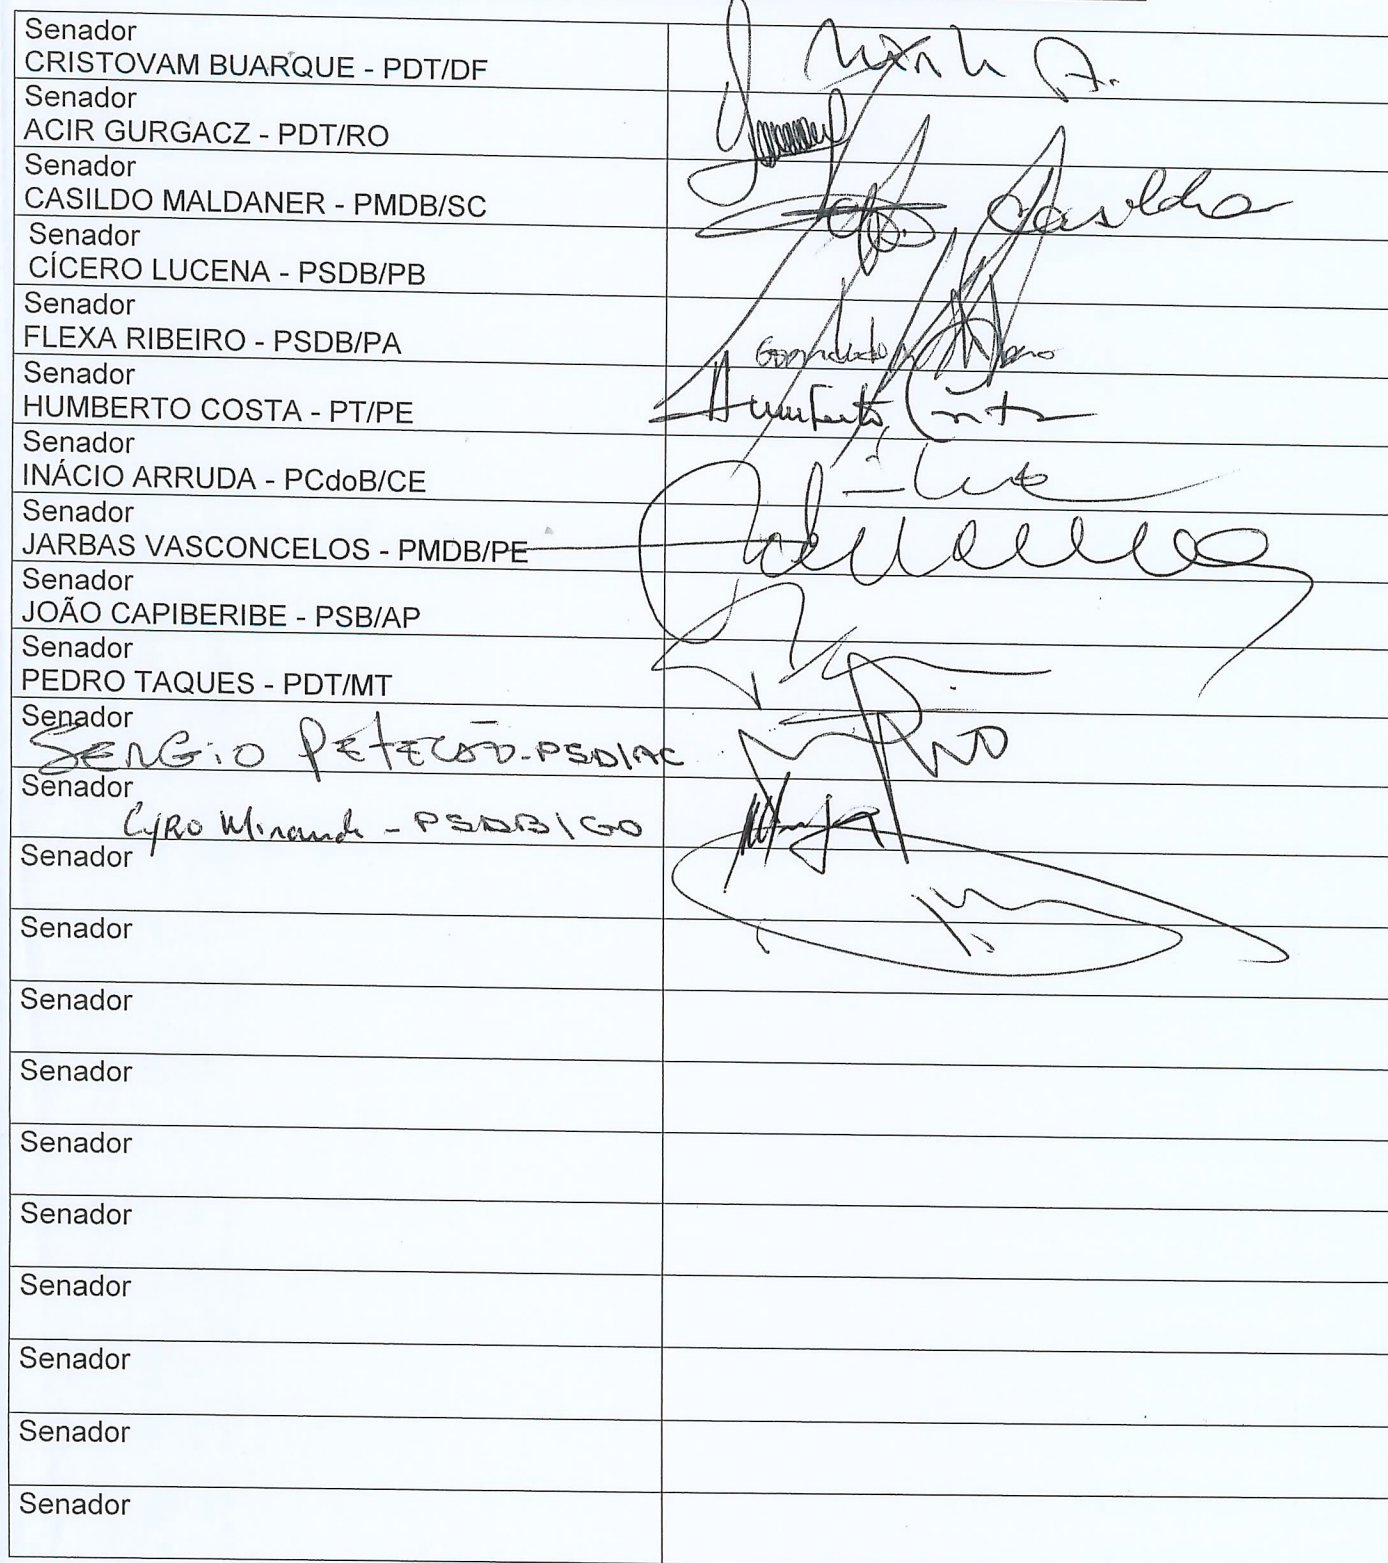 Senador
CRISTOVAM BUARQUE - PDT/DF
Senador
ACIR GURGACZ - PDT/RO
Senador
CASILDO MALDANER - PMDB/SC
Casildo
Senador
CÍCERO LUCENA - PSDB/PB
Senador
FLEXA RIBEIRO - PSDB/PA
Senador
HUMBERTO COSTA - PT/PE
Humberto Costa
Senador
INÁCIO ARRUDA - PCdoB/CE
Senador
JARBAS VASCONCELOS - PMDB/PE
Senador
JOÃO CAPIBERIBE - PSB/AP
Senador
PEDRO TAQUES - PDT/MT
Senador
SERGIO PETECÃO - PSD/AC
Senador
Cyro Miranda - PSDB/GO
Senador
Senador
Senador
Senador
Senador
Senador
Senador
Senador
Senador
Senador